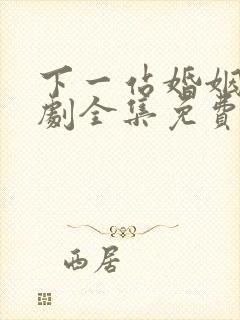 下一站婚姻
劇全集免費
西居